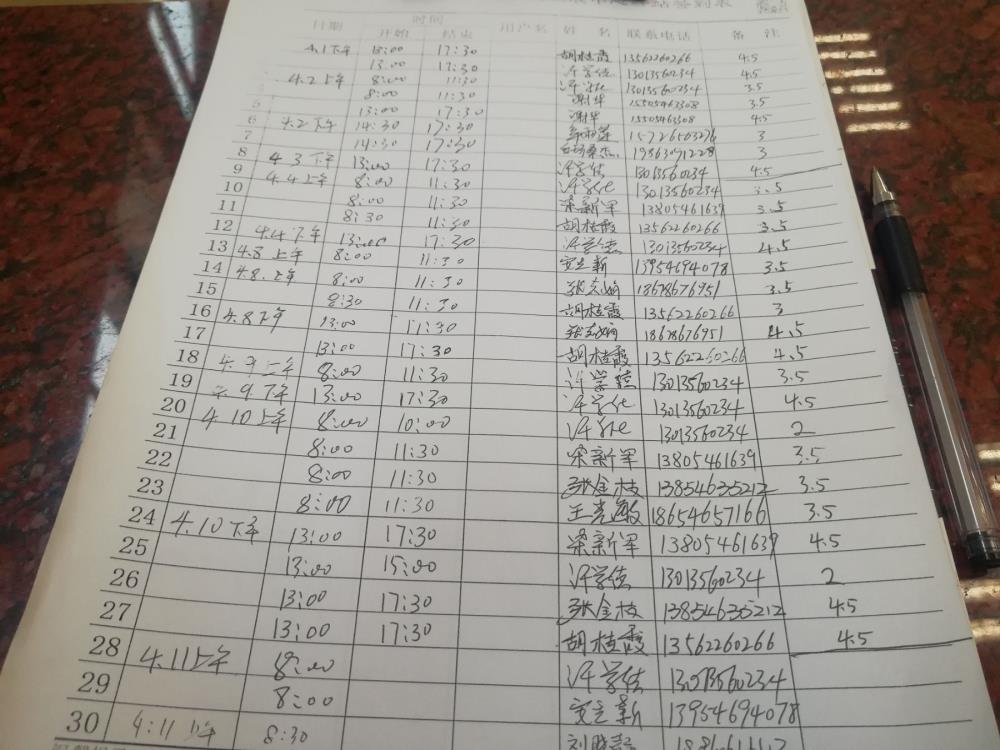 日期 时间 用户名 姓 名 联系电话 备 注
开始 结束
4.1下午 13:00 17:30 胡桂霞 13562260266 4.5
13:00 17:30 许学信 13013560234 4.5
4.2上午 8:00 11:30 13013560234 3.5
8:00 11:30 谢华 15505463308 3.5
5 13:00 17:30 谢华 15505463308 4.5
6 4.2下午 14:30 17:30 15726503276 3
7 14:30 17:30 19863091228 3
8 4.3下午 13:00 17:30 13013560234 4.5
9 4.4上午 8:00 11:30 13013560234 3.5
10 8:00 11:30 梁新军 13805461639 3.5
11 8:30 11:30 胡桂霞 13562260266 3.5
12 4.4下午 13:00 17:30 13013560234 4.5
13 4.8上午 8:00 11:30 安立新 13954694078 3.5
14 4.8.上午 8:00 11:30 18678676951 3.5
15 8:30 11:30 胡桂霞 13562260266 3
16 4.8下午 13:00 17:30 18678676951 4.5
17 13:00 17:30 胡桂霞 13562260266 4.5
18 4.9上午 8:00 11:30 13013560234 3.5
19 4.9下午 13:00 17:30 13013560234 4.5
20 4.10上午 8:00 10:00 13013560234 2
21 8:00 11:30 梁新军 13805461639 3.5
22 8:00 11:30 张金枝 13854635212 3.5
23 8:00 11:30 王秀敏 18654657166 3.5
24 4.10下午 13:00 17:30 梁新军 13805461639 4.5
25 13:00 15:00 13013560234 2
26 13:00 17:30 张金枝 13854635212 4.5
27 13:00 17:30 胡桂霞 13562260266 4.5
28 4.11上午 8:00 13013560234
29 8:00 安立新 13954694078
30 4:11上午 8:30